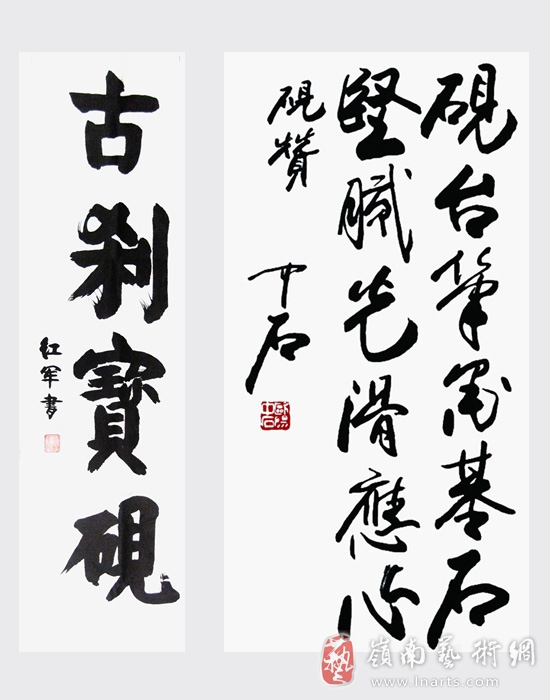 硯台筆墨基石
堅膩光滑應心
硯贊
中石
歐陽中石
古刹寶硯
紅军書
嶺南藝術網
www.lnarts.com